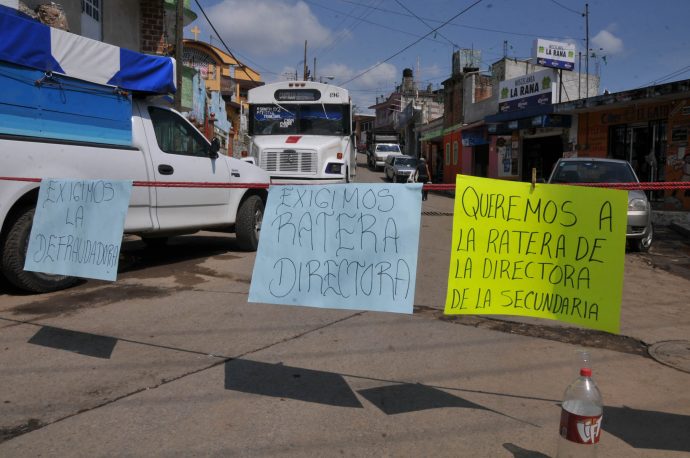 EXIGIMOS
LA
DEFRAUDADORA
EXIGIMOS
RATERA
DIRECTORA
QUEREMOS A
LA RATERA DE
LA DIRECTORA
DE LA SECUNDARIA
LA RANA
LA RANA
196